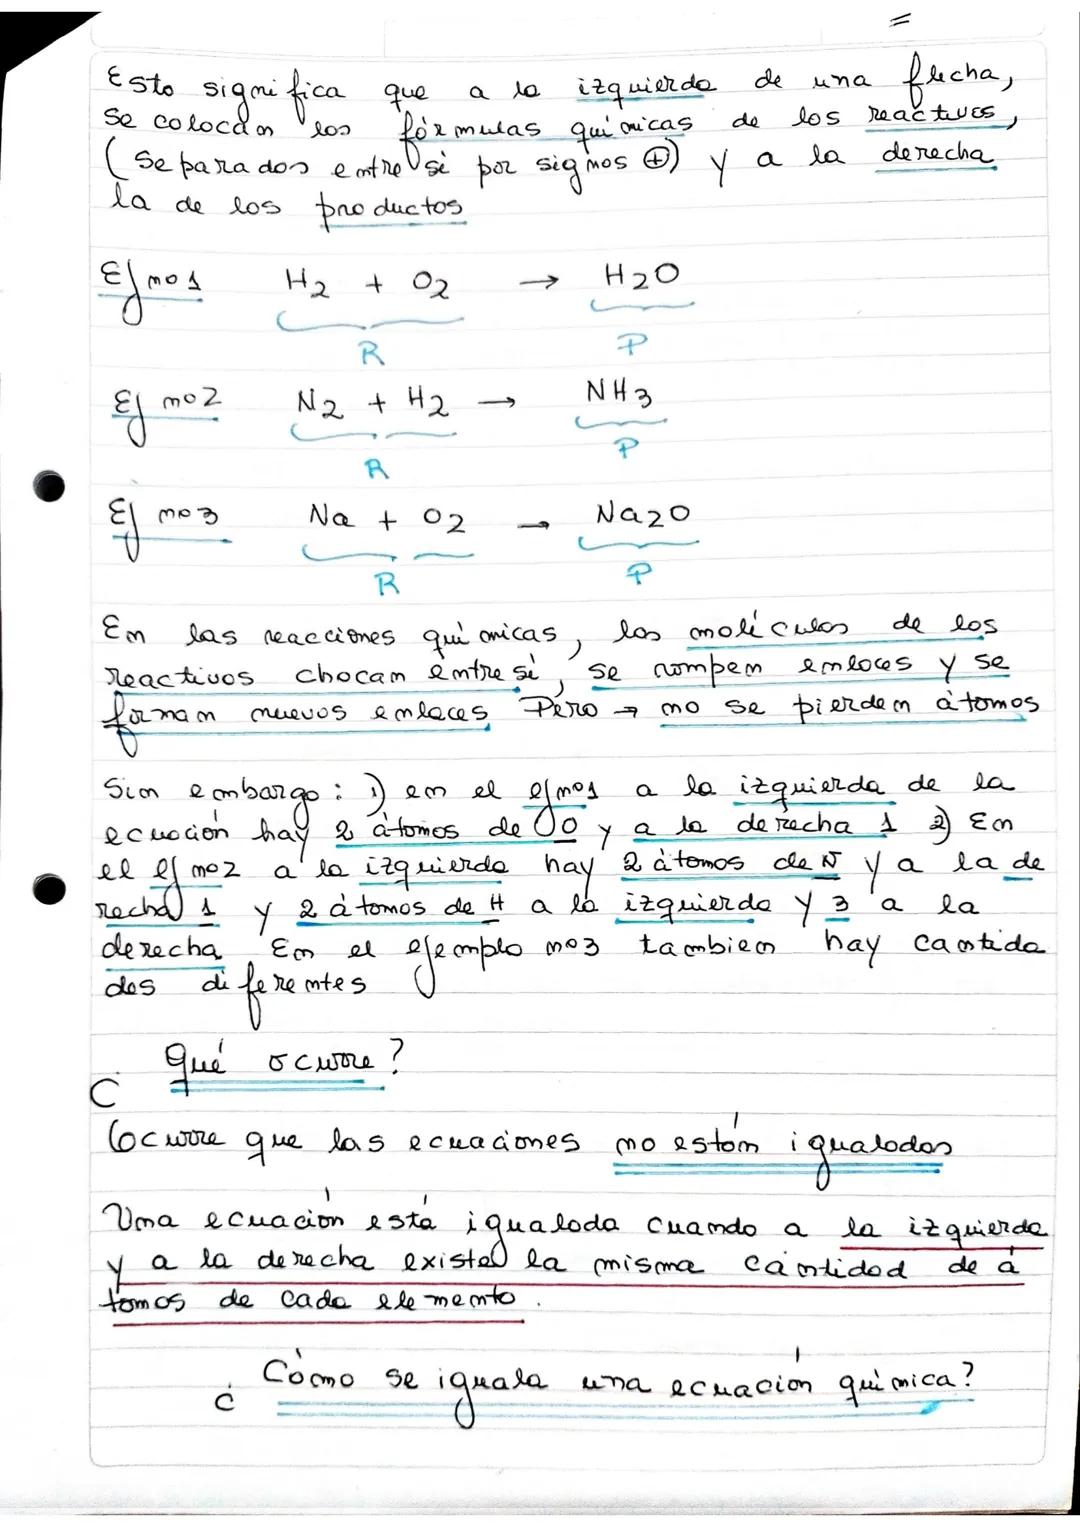 Esto significa que a la izquierda de una flecha,
se colocan las fórmulas químicas de los reactivos,
(separados entre sí por signos ⊕) y a la derecha
la de los productos
Ej nº1 H2 + O2 → H2O
R P
Ej nº2 N2 + H2 → NH3
R P
Ej nº3 Na + O2 → Na2O
R P
En las reacciones químicas, las moléculas de los
reactivos chocan entre sí, se rompen enlaces y se
forman nuevos enlaces Pero → no se pierden átomos
Sin embargo: 1) en el ej nº1 a la izquierda de la
ecuación hay 2 átomos de O y a la derecha 1 2) En
el ej nº2 a la izquierda hay 2 átomos de N y a la de
recha 1 y 2 átomos de H a la izquierda y 3 a la
derecha En el ejemplo nº3 tambien hay cantida
des diferentes
¿Qué ocurre?
Ocurre que las ecuaciones no están igualadas
Una ecuación está igualada cuando a la izquierda
y a la derecha existe la misma cantidad de á
tomos de cada elemento.
¿Cómo se iguala una ecuación química?